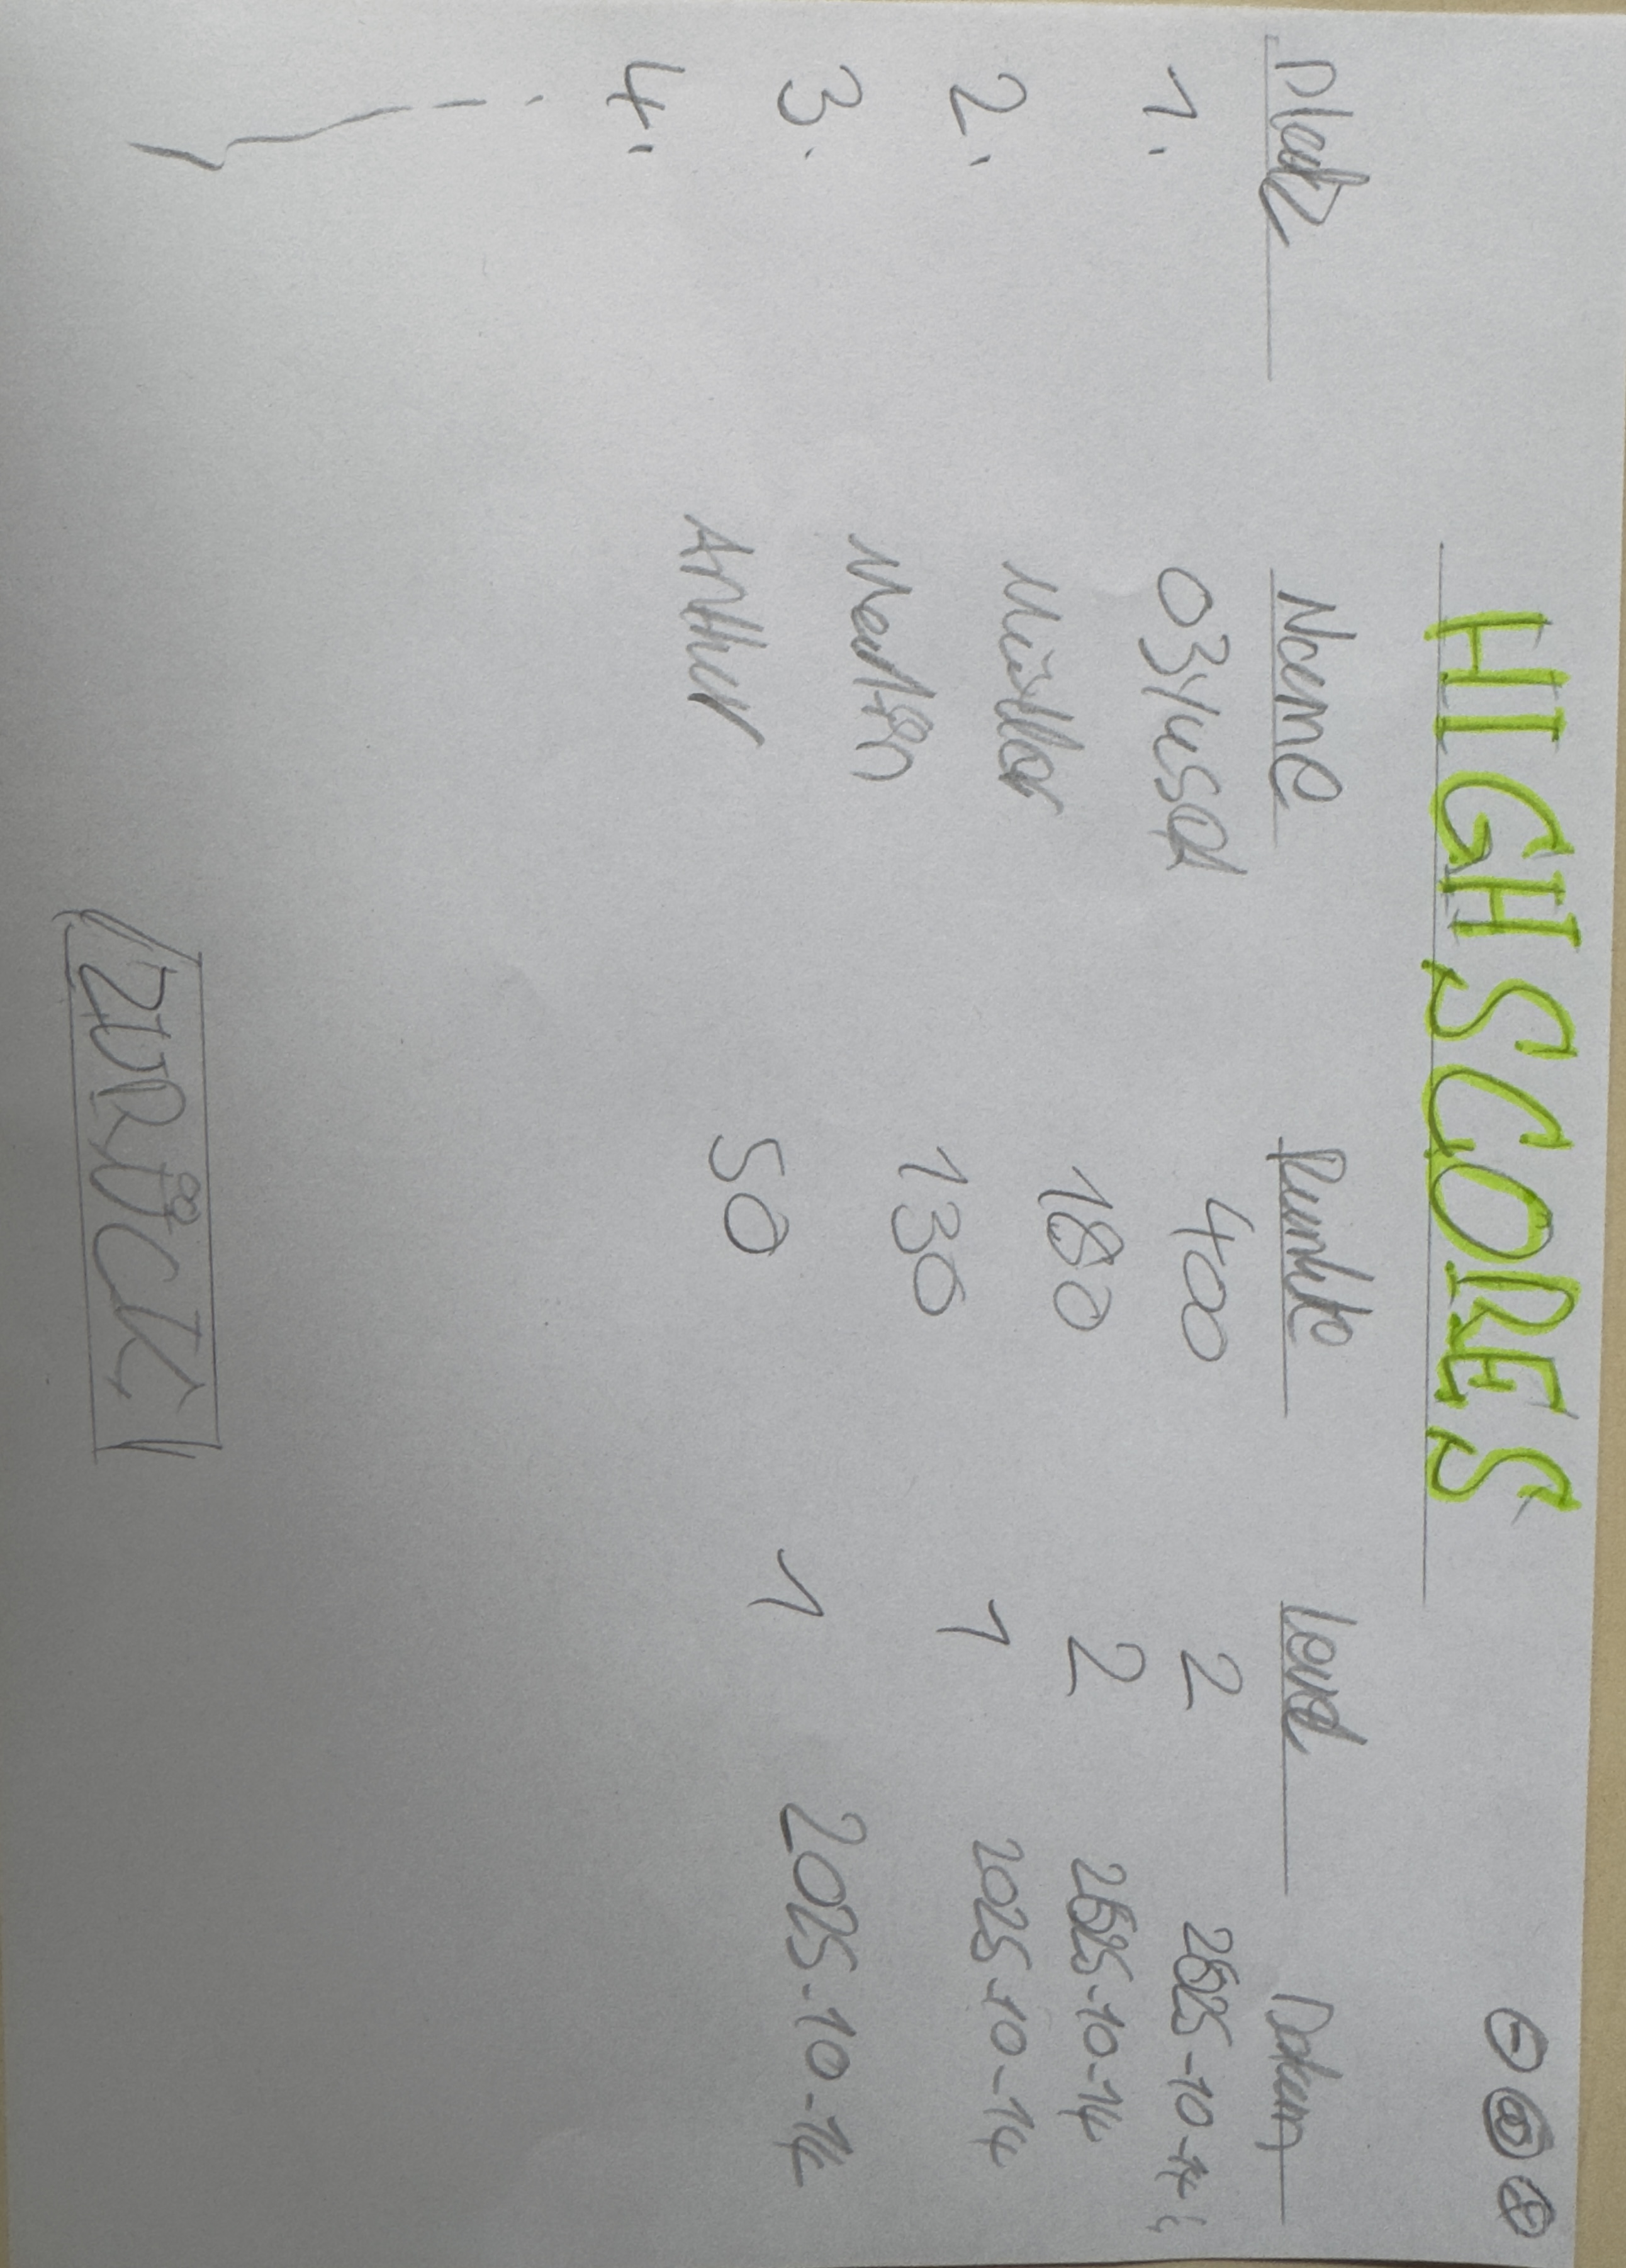 HIGHSCORES
Platz Name Punkte Level Datum
1. 400 2 2025-10-14
2. Müller 180 2 2025-10-14
3. 130 1 2025-10-14
4. Arthur 50 1 2025-10-14
ZURÜCK